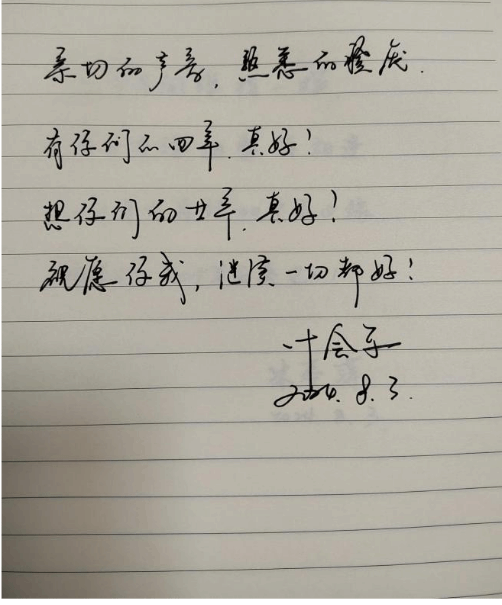 亲切的声音,熟悉的
有你们的四年,真好!
想你们的廿年,真好!
祝愿你我,一切都好!
叶会
2024.8.3.